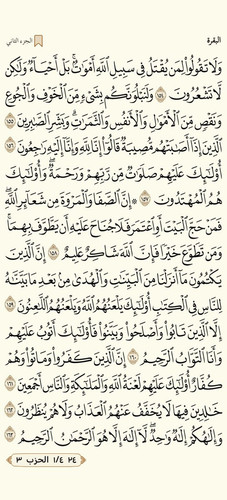 البقرة الجزء الثاني
وَلَا تَقُولُوا۟ لِمَن يُقْتَلُ فِى سَبِيلِ ٱللَّهِ أَمْوَٰتٌۢ ۚ بَلْ أَحْيَآءٌ وَلَٰكِن
لَّا تَشْعُرُونَ ١٥٤ وَلَنَبْلُوَنَّكُم بِشَىْءٍ مِّنَ ٱلْخَوْفِ وَٱلْجُوعِ
وَنَقْصٍ مِّنَ ٱلْأَمْوَٰلِ وَٱلْأَنفُسِ وَٱلثَّمَرَٰتِ ۗ وَبَشِّرِ ٱلصَّٰبِرِينَ ١٥٥
ٱلَّذِينَ إِذَآ أَصَٰبَتْهُم مُّصِيبَةٌ قَالُوٓا۟ إِنَّا لِلَّهِ وَإِنَّآ إِلَيْهِ رَٰجِعُونَ ١٥٦
أُو۟لَٰٓئِكَ عَلَيْهِمْ صَلَوَٰتٌ مِّن رَّبِّهِمْ وَرَحْمَةٌ ۖ وَأُو۟لَٰٓئِكَ
هُمُ ٱلْمُهْتَدُونَ ١٥٧ ۞ إِنَّ ٱلصَّفَا وَٱلْمَرْوَةَ مِن شَعَآئِرِ ٱللَّهِ ۖ
فَمَنْ حَجَّ ٱلْبَيْتَ أَوِ ٱعْتَمَرَ فَلَا جُنَاحَ عَلَيْهِ أَن يَطَّوَّفَ بِهِمَا ۚ
وَمَن تَطَوَّعَ خَيْرًا فَإِنَّ ٱللَّهَ شَاكِرٌ عَلِيمٌ ١٥٨ إِنَّ ٱلَّذِينَ
يَكْتُمُونَ مَآ أَنزَلْنَا مِنَ ٱلْبَيِّنَٰتِ وَٱلْهُدَىٰ مِنۢ بَعْدِ مَا بَيَّنَّٰهُ
لِلنَّاسِ فِى ٱلْكِتَٰبِ ۙ أُو۟لَٰٓئِكَ يَلْعَنُهُمُ ٱللَّهُ وَيَلْعَنُهُمُ ٱللَّٰعِنُونَ ١٥٩
إِلَّا ٱلَّذِينَ تَابُوا۟ وَأَصْلَحُوا۟ وَبَيَّنُوا۟ فَأُو۟لَٰٓئِكَ أَتُوبُ عَلَيْهِمْ ۚ
وَأَنَا ٱلتَّوَّابُ ٱلرَّحِيمُ ١٦٠ إِنَّ ٱلَّذِينَ كَفَرُوا۟ وَمَاتُوا۟ وَهُمْ
كُفَّارٌ أُو۟لَٰٓئِكَ عَلَيْهِمْ لَعْنَةُ ٱللَّهِ وَٱلْمَلَٰٓئِكَةِ وَٱلنَّاسِ أَجْمَعِينَ ١٦١
خَٰلِدِينَ فِيهَا ۖ لَا يُخَفَّفُ عَنْهُمُ ٱلْعَذَابُ وَلَا هُمْ يُنظَرُونَ ١٦٢
وَإِلَٰهُكُمْ إِلَٰهٌ وَٰحِدٌ ۖ لَّآ إِلَٰهَ إِلَّا هُوَ ٱلرَّحْمَٰنُ ٱلرَّحِيمُ ١٦٣
٢٤ ١/٤ الحزب ٣